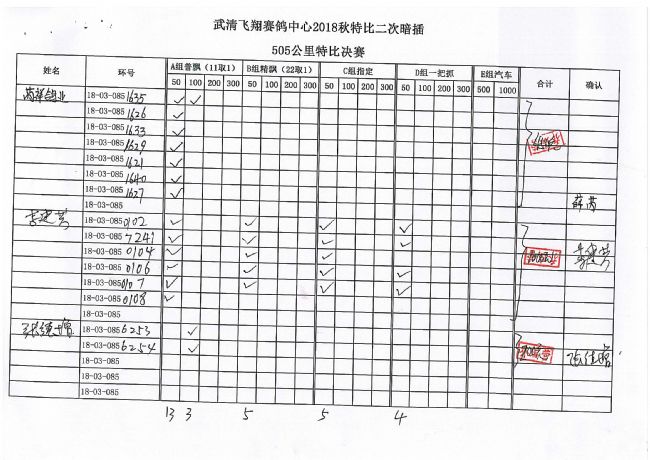 武清飞翔赛鸽中心2018秋特比二次暗插
505公里特比决赛
姓名 环号 A组普飘（11取1） B组精飘（22取1） C组指定 D组一把抓 E组汽车 合计 确认
50 100 200 300 50 100 200 300 50 100 200 300 50 100 200 300 500 1000
18-03-0851635 ✓ ✓
18-03-0851626 ✓
18-03-0851633 ✓
18-03-0851629 ✓
18-03-0851621 ✓
18-03-0851640 ✓
18-03-0851627 ✓
18-03-085 薛芮
18-03-0850102 ✓ ✓ ✓ ✓
18-03-0857241 ✓ ✓ ✓ ✓
18-03-0850104 ✓ ✓ ✓
18-03-0850106 ✓ ✓ ✓ ✓
18-03-0850107 ✓ ✓ ✓ ✓
18-03-0850108 ✓
18-03-085
18-03-0856253 ✓
18-03-0856254 ✓
18-03-085
18-03-085
18-03-085
13 3 5 5 4